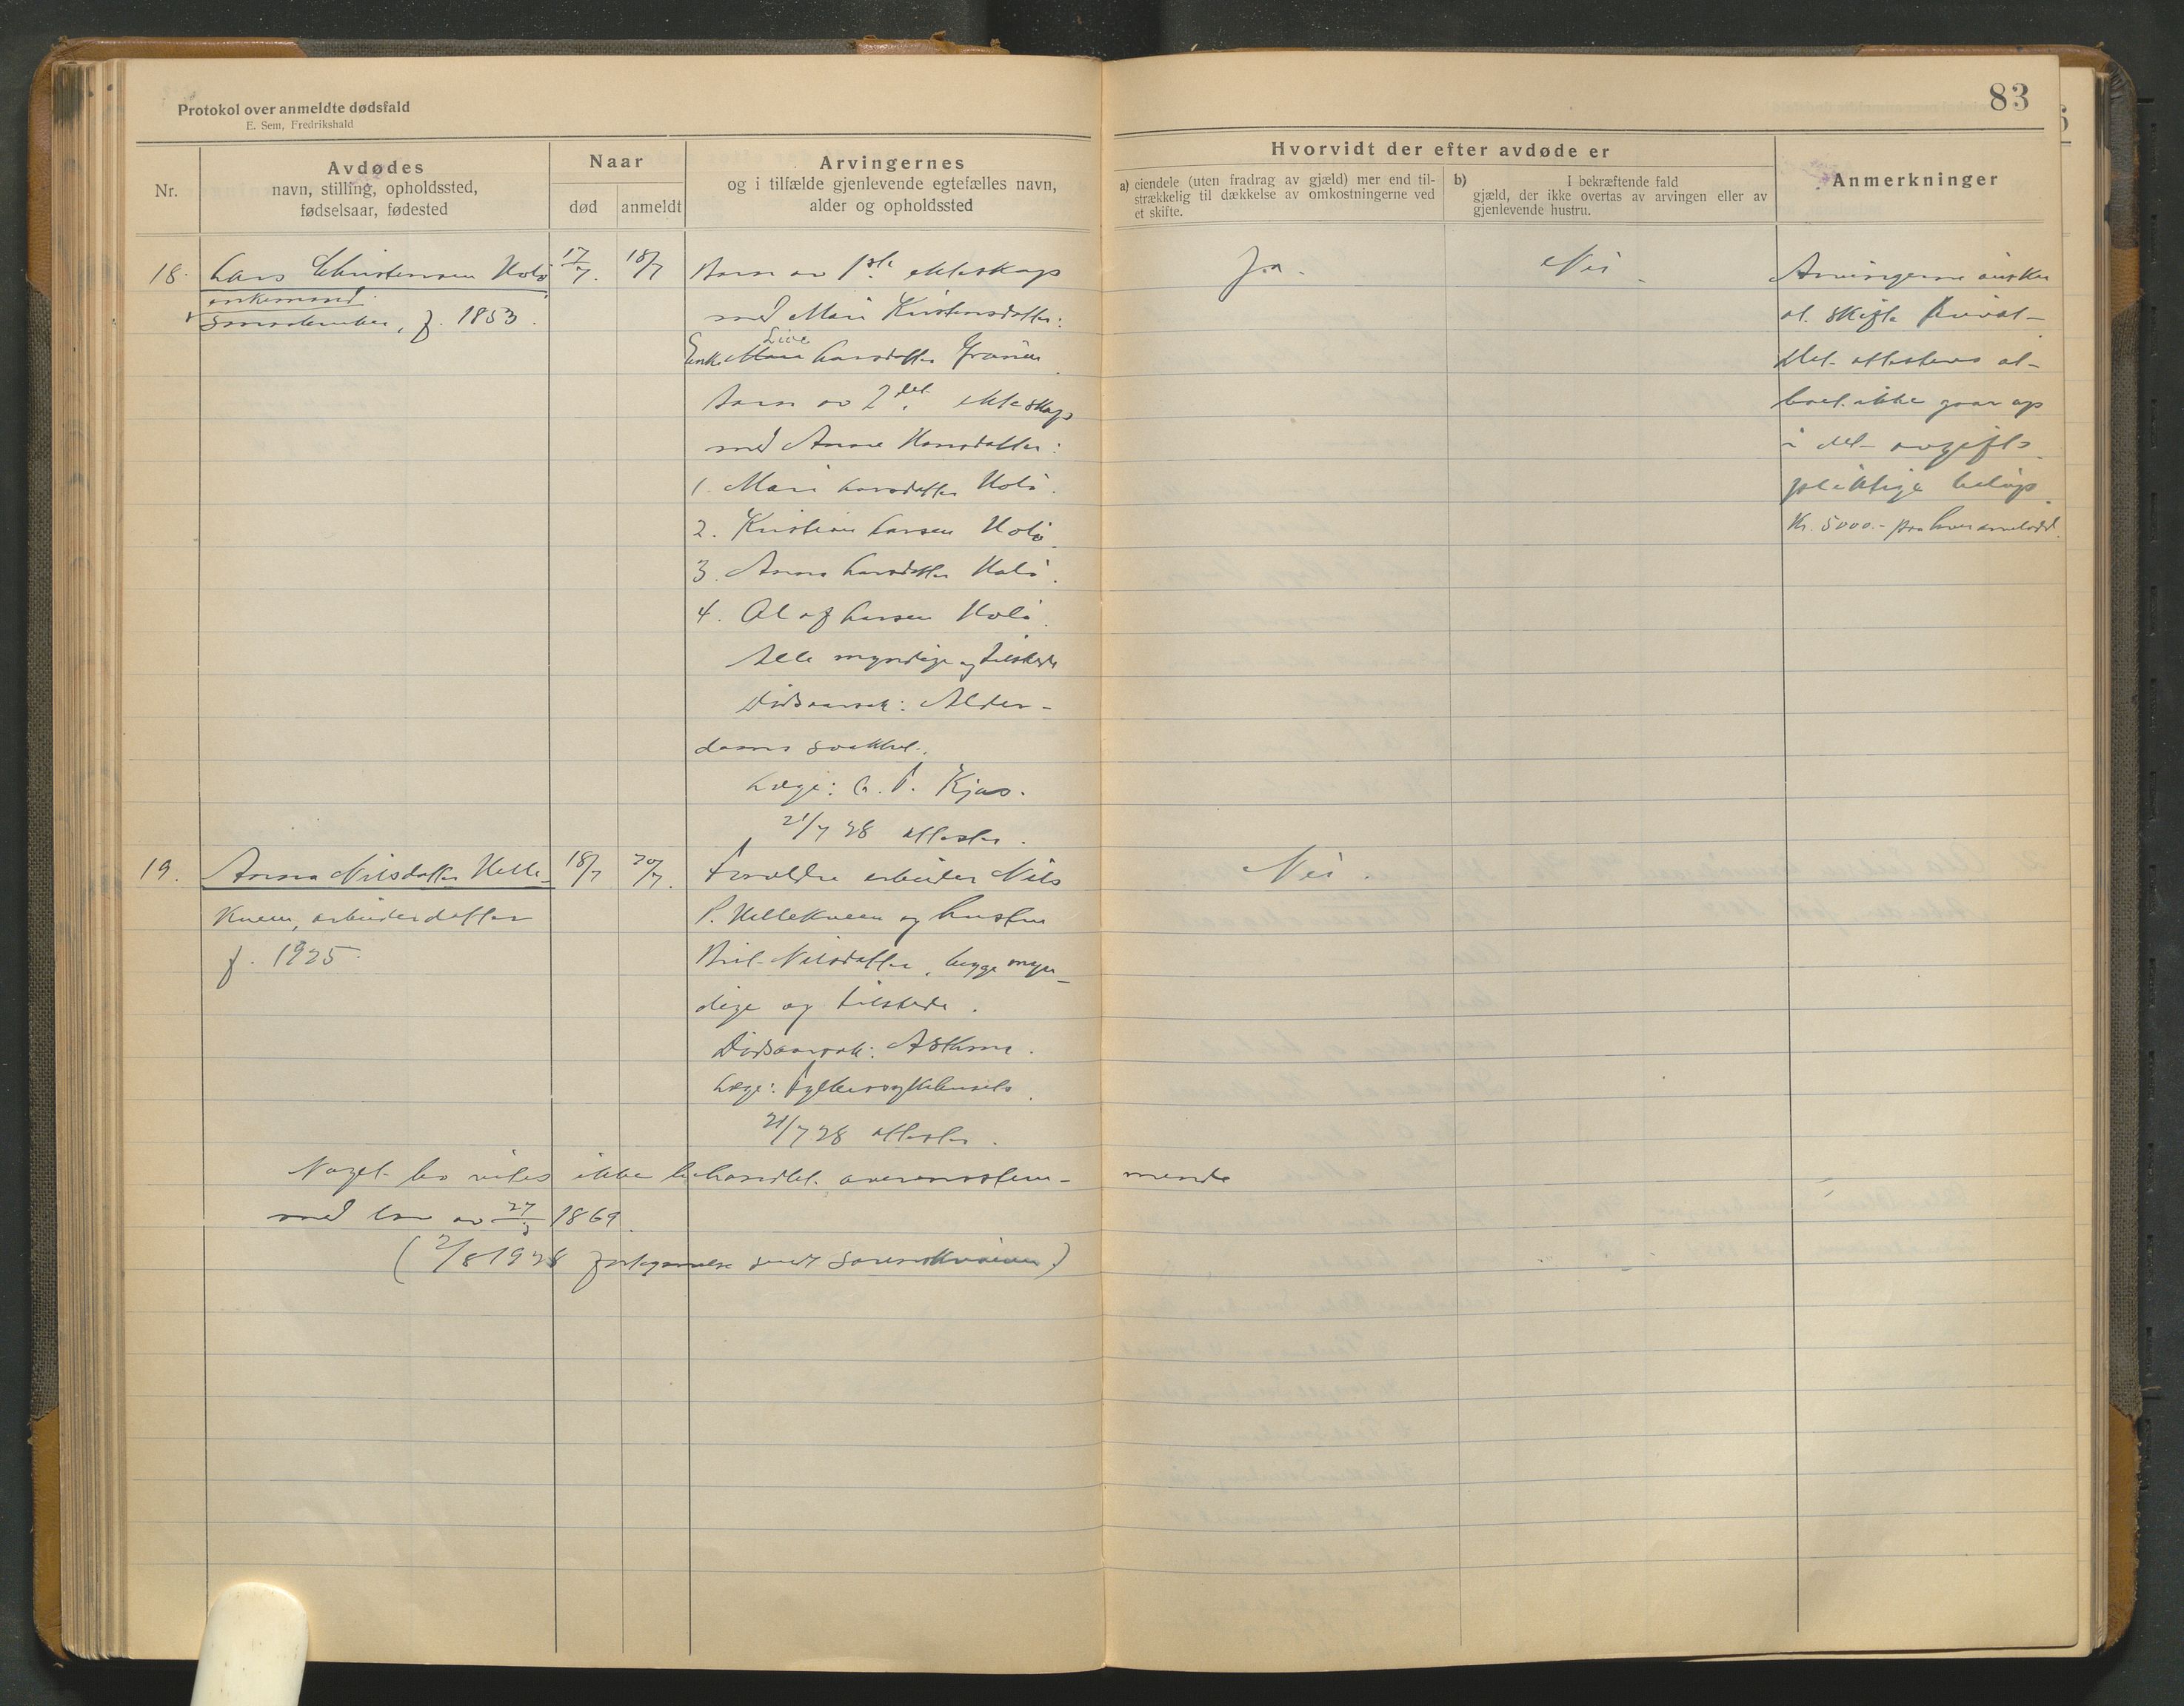 Protokol over anmeldte dødsfald
E. Sem, Fredrikshald
83
Nr.
Avdødes
navn, stilling, opholdssted,
fødselsaar, fødested
Naar
død
anmeldt
Arvingernes
og i tilfælde gjenlevende egtefælles navn,
alder og opholdssted
Hvorvidt der efter avdøde er
a) eiendele (uten fradrag av gjæld) mer end til-
strækkelig til dækkelse av omkostningerne ved
et skifte.
b) I bekræftende fald
gjæld, der ikke overtas av arvingen eller av
gjenlevende hustru.
Anmerkninger
18. Lars Christensen Holö
enkemand
f. 1853.
17/7.
18/7
Barn av 1ste ekteskap
med Mari Kristensdatter:
Enke Live Larsdatter
Barn av 2det ekteskap
med Anne Hansdatter:
1. Mari Larsdatter Holö.
2. Kristian Larsen Holö.
3. Anna Larsdatter Holö.
4. Olaf Larsen Holö.
Alle myndige og tilstede
Dödsaarsak: Alder-
doms svakhet.
Læge: Kjos.
21/7 28 attester.
Ja.
Nei
Arvingerne önsker
at skifte privat-
Det attesteres at-
boet ikke gaar op
i det avgifts
pliktige belöp
Kr. 5000.- paa hver arvelodd.
19. Anna Nilsdatter Helle-
kveen, arbeiderdatter
f. 1925.
18/7
20/7.
Foreldre arbeider Nils
P. Hellekveen og hustru
Brit Nilsdatter, begge myn-
dige og tilstede.
Dödsaarsak: Asthma.
Læge: Fylkessykehusets
21/7 28 attester.
Nei.
Noget bo vites ikke behandlet overensstem- mende
med lov av 27/3 1869.
(2/8 1928 fortegnelse sendt sorenskriveren)